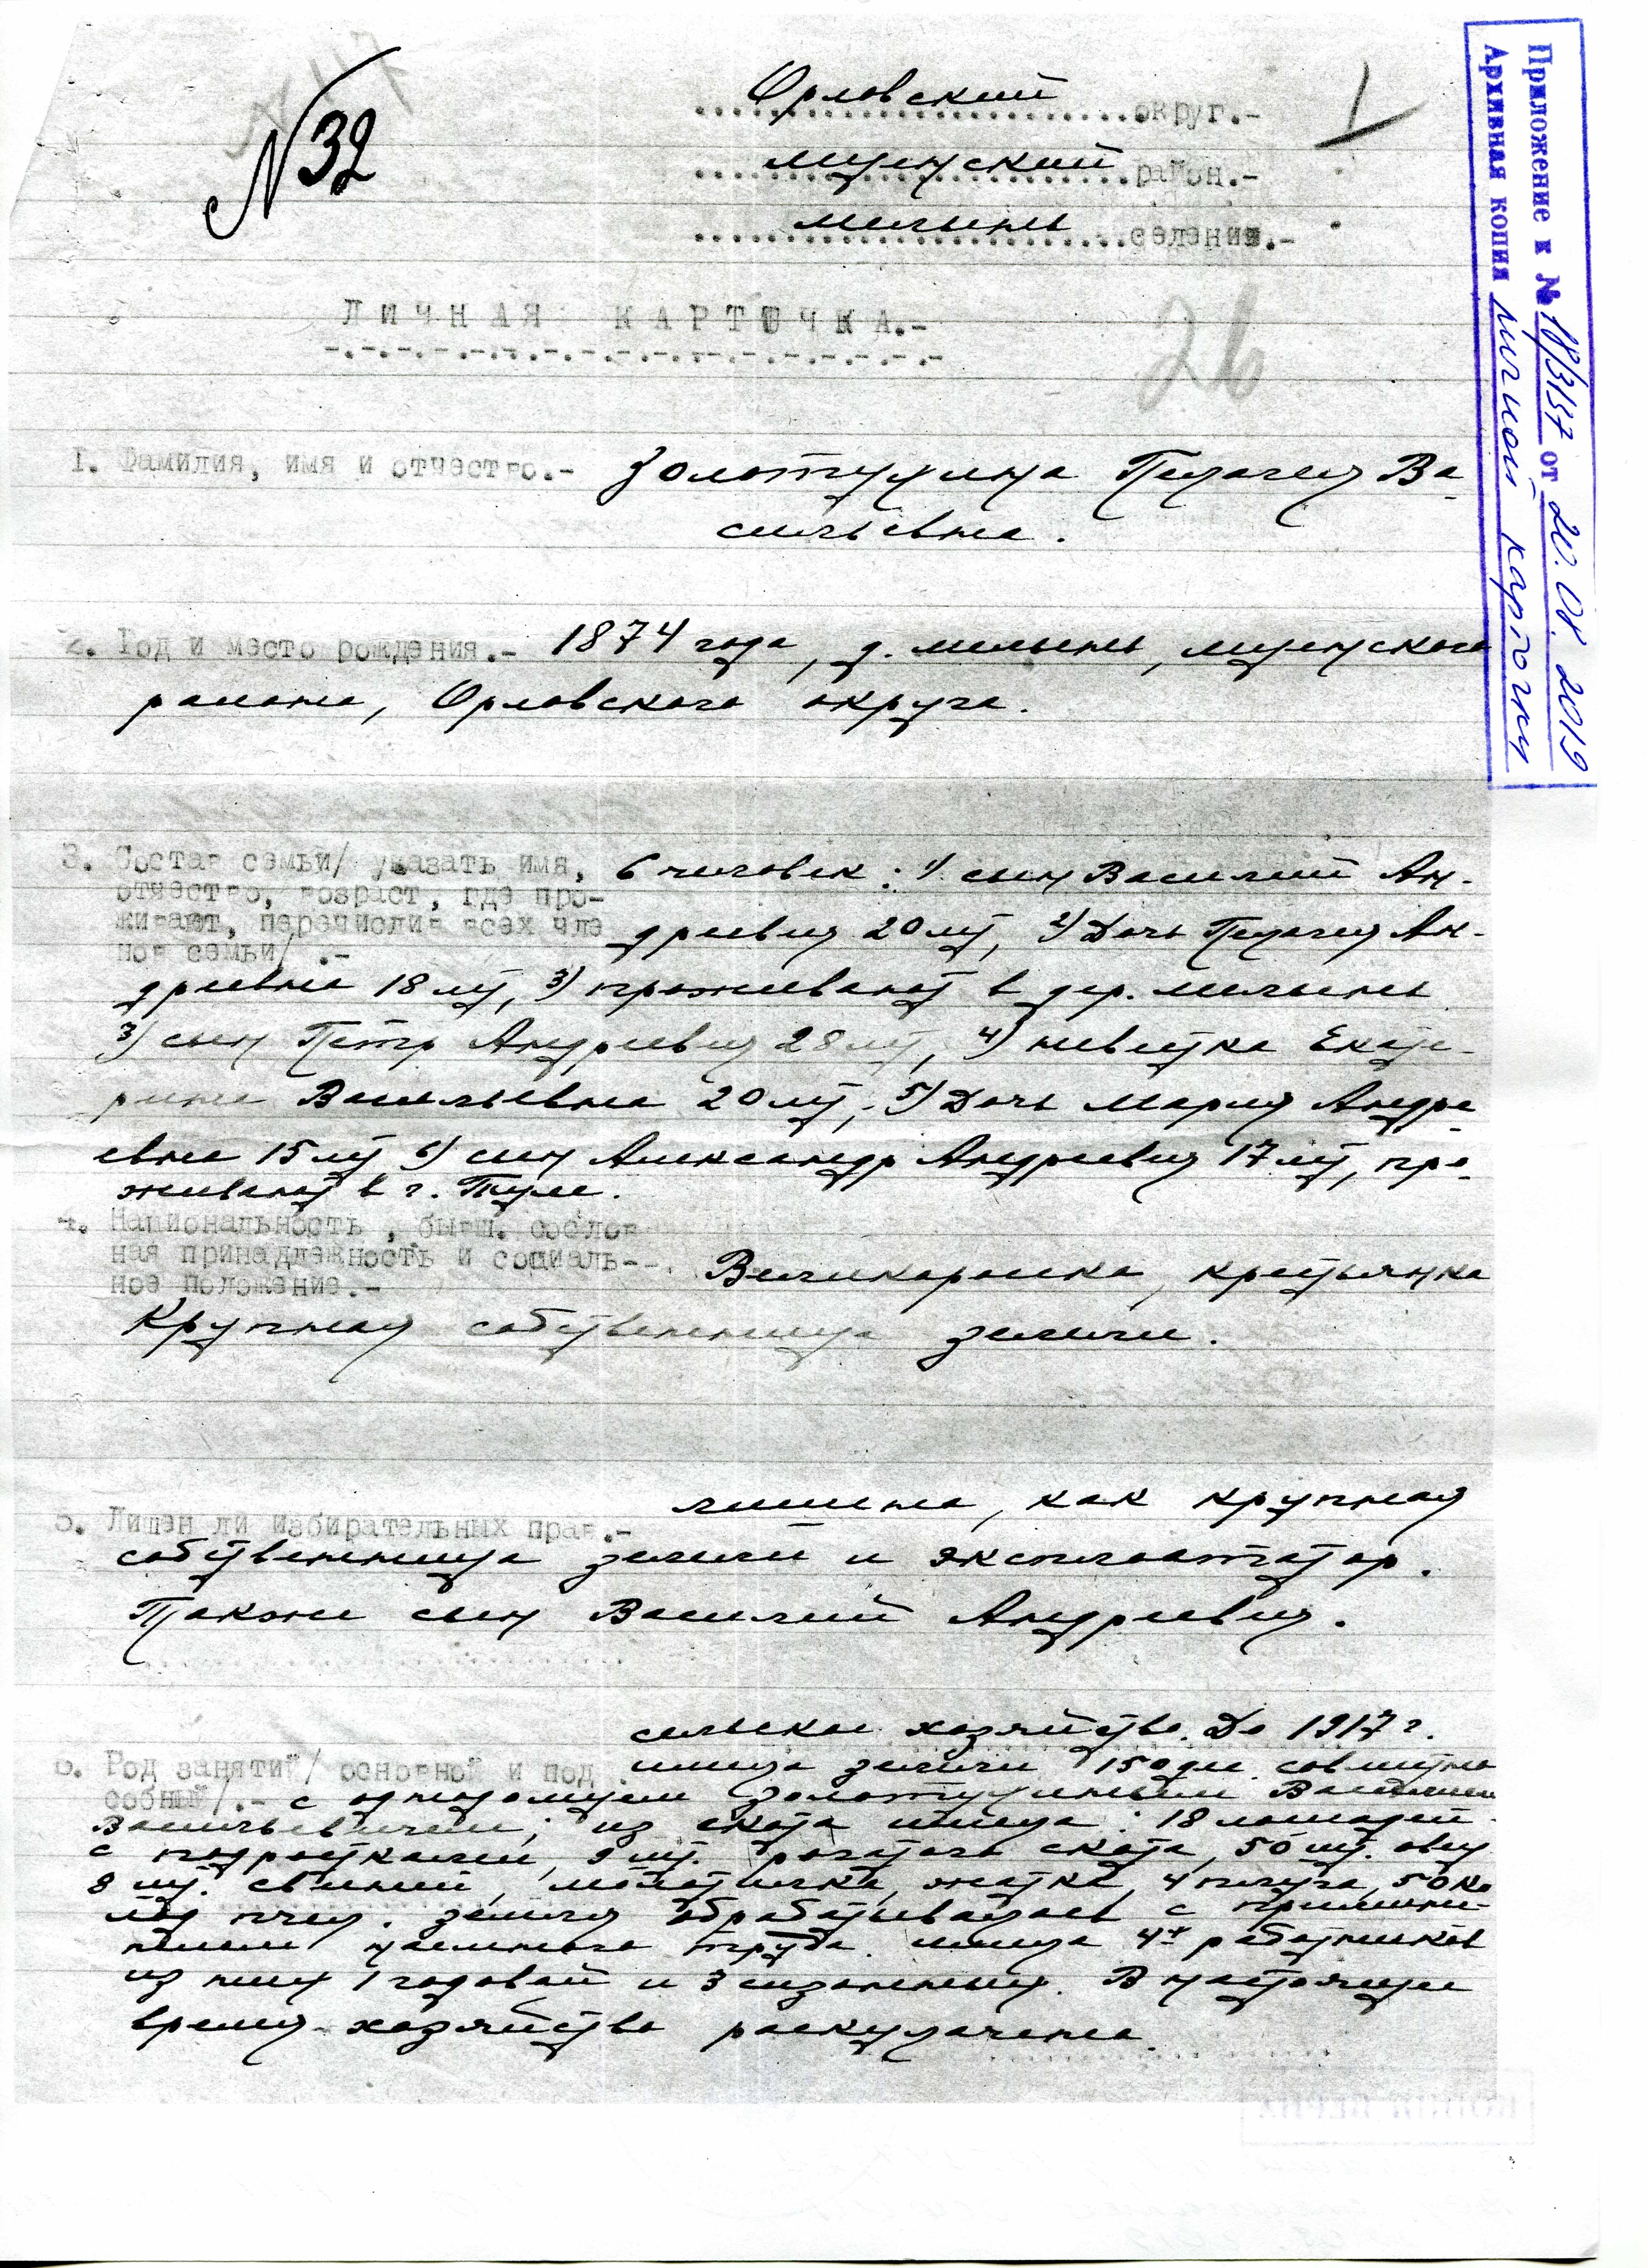 Приложение к № 18/3137 от 20.08.2019
Архивная копия личной карточки
N 32
Орловский округ.-
Мценский район.-
Мелынь селения.-
1
ЛИЧНАЯ КАРТОЧКА.-
26
1. Фамилия, имя и отчество.- Золотухина Пелагея Ва-
сильевна.
2. Год и место рождения.- 1874 года, д. Мелынь, Мценского
района, Орловского округа.
3. Состав семьи/ указать имя, 6 человек: 1) сын Василий Ан-
отчество, возраст, где про-
живают, перечислив всех чле дреевич 20 лет, 2) Дочь Пелагея Ан-
нов семьи/ .-
дреевна 18 лет, 3) проживают в дер. Мелынь
3) сын Петр Андреевич 28 лет, 4) невестка Екате-
рина Васильевна 20 лет, 5) Дочь Мария Андре-
евна 15 лет 6) сын Александр Андреевич 17 лет, про-
живают в г. Туле.
4. Национальность, бывш. сослов
ная принадлежность и социаль-- Великороска, крестьянка
ное положение.-
Крупная собственница земли.
5. Лишен ли избирательных прав.- лишена, как крупная
собственница земли и эксплоататор.
Также сын Василий Андреевич.
сельское хозяйство. До 1917 г.
6. Род занятий/ основной и под имела земли 150 дес. совместно
собный/.- с однодомцем Золотухиным Василием
Васильевичем; из скота имела: 18 лошадей
с подростками, 9 шт. рогатого скота, 50 шт. овец
8 шт. свиней, молотилка, жатка, 4 плуга, 50 ко
лод пчел. Земля обрабатывалась с примене-
нием наемного труда. Имела 4х работников
из них 1 годовой и 3 сезонных. В настоящее
время хозяйство раскулачено.